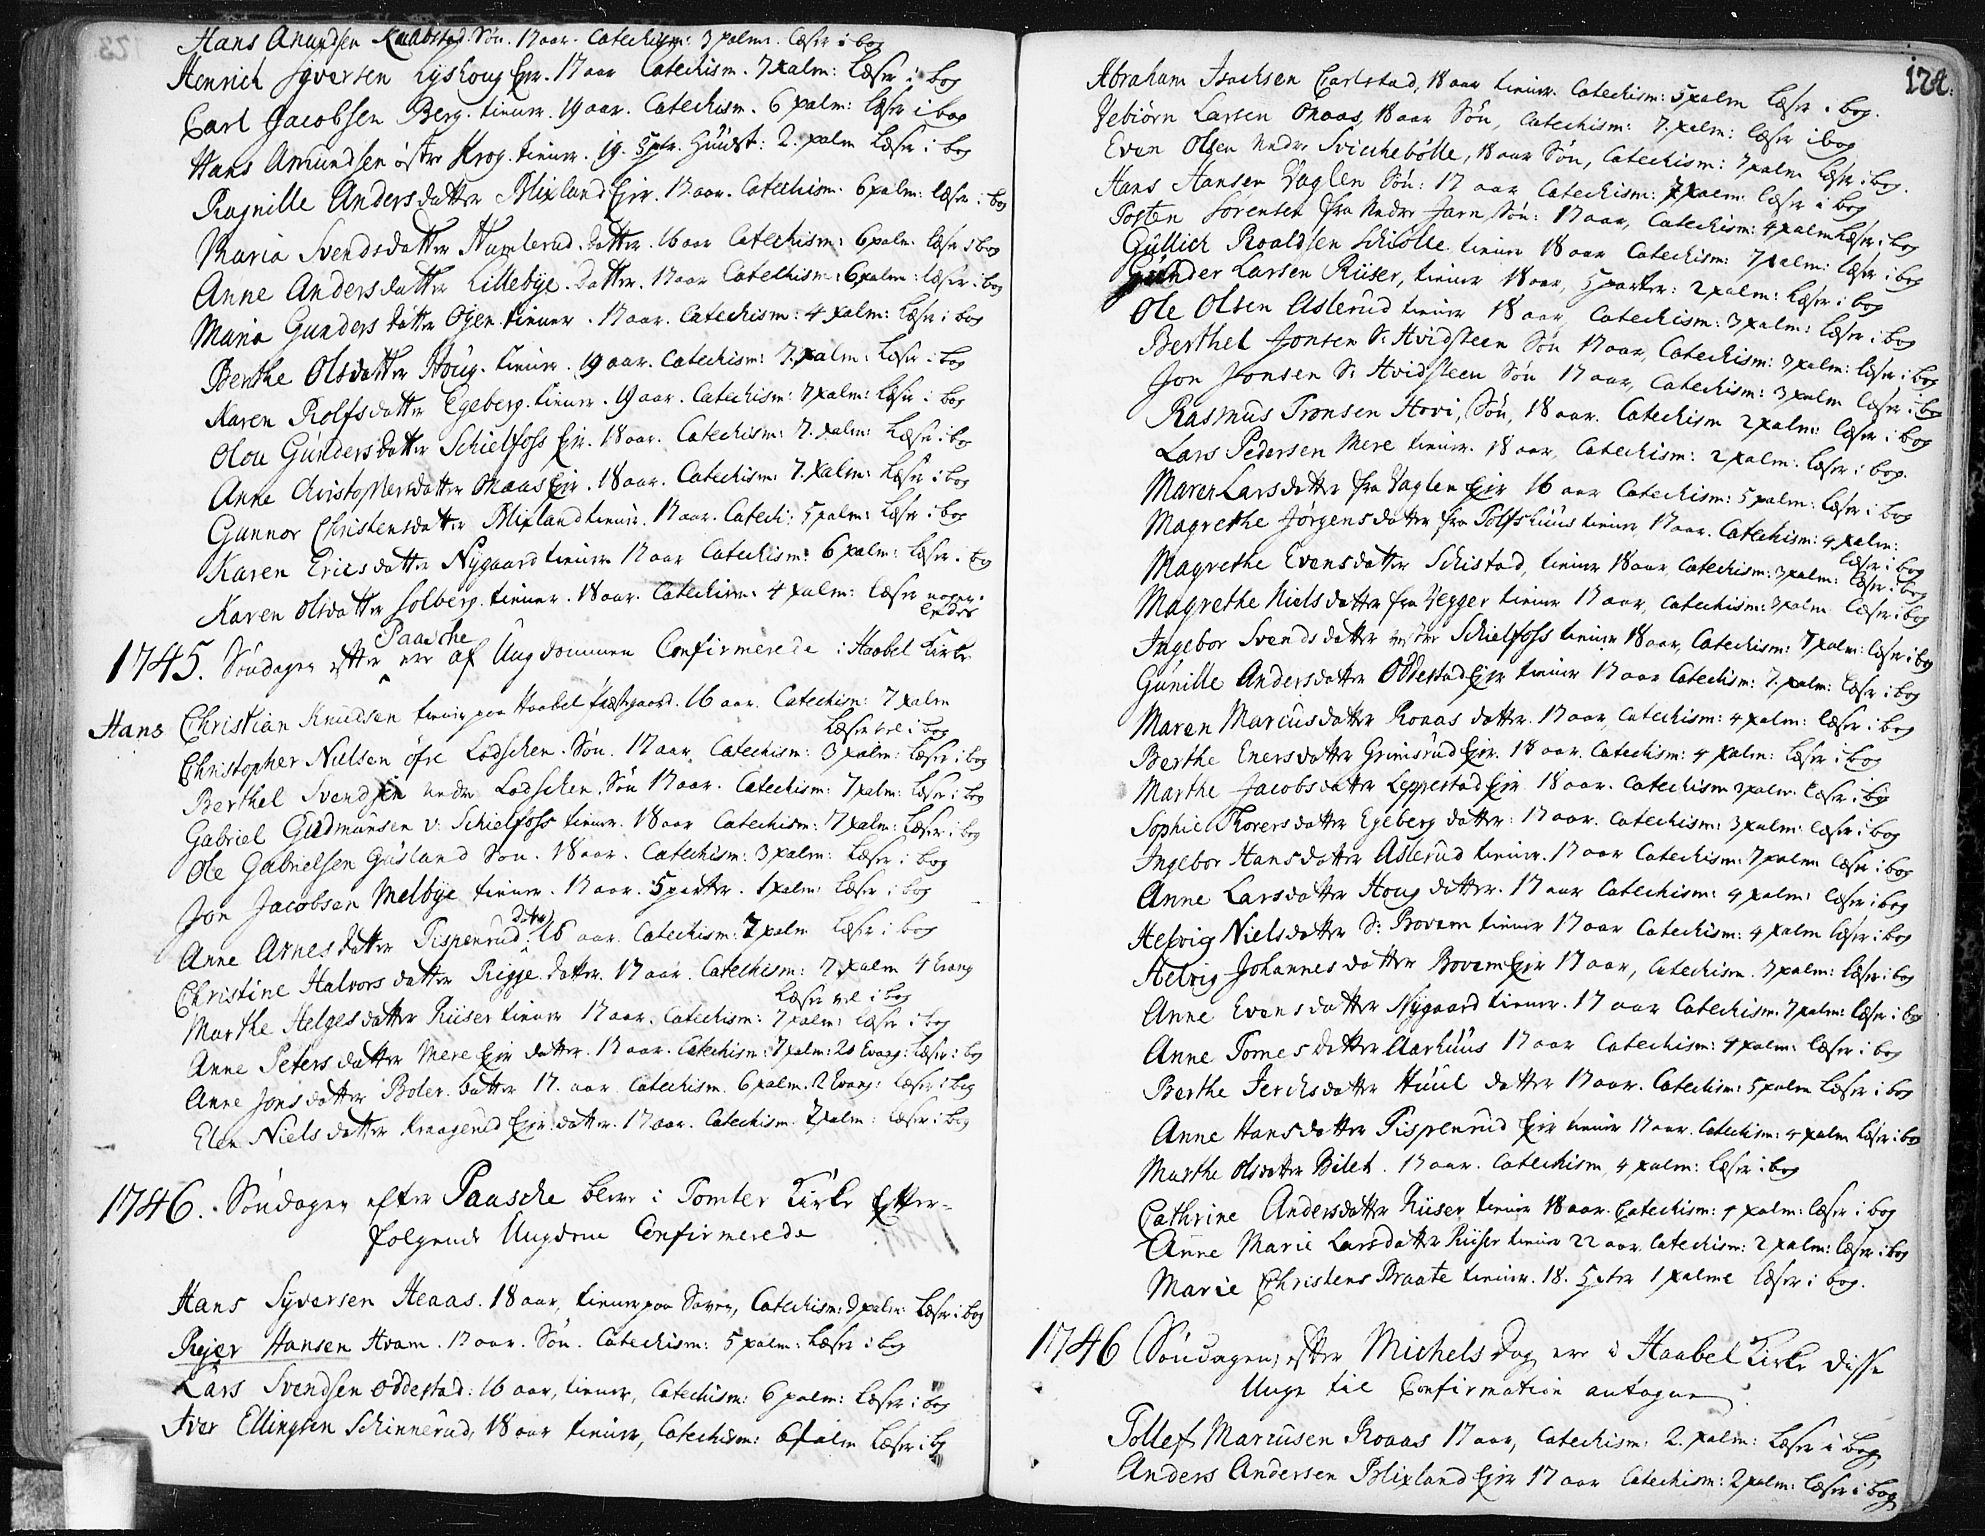 Hans Anundsen Knabstad. Søn. 17 aar. Catechism: 3 psalm. læser i bog
Henrich Syversen Lyshoug Eier. 17 aar Catechism. 7 psalm: læser i bog
Carl Jacobsen Berg. tiener. 19 aar. Catechism. 6 psalm: læser i bog
Hans Amundsen østre Krog. tiener. 19. 5 ptr. 2. psalm læser i bog
Ragnille Andersdatter Blixland Eier. 17 aar. Catechism. 6 psalm: læser i bog
Maria Svendsdatter Humlerud. datter. 16 aar Catechism: 6 psalm: læser i bog
Anne Andersdatter Lillebye. datter. 17 aar Catechism: 6 psalm: læser i bog
Maria Gundersdatter Ojen. tiener. 17 aar. Catechism: 4 psalm: læser i bog
Berthe Olsdatter Houg. tiener. 19 aar. Catechism: 7. psalm: læser i bog
Karen Rolfsdatter Egeberg. tiener. 19 aar. Catechism: 7 psalm: læser i bog
Olou Gundersdatter Schielfoss Eie. 18 aar. Catechism: 7. psalm: læser i bog
Anne Christophersdatter Onaas Eie. 18 aar. Catechism: 7. psalm: læser i bog
Gunnor Christensdatter Blixland tiener. 17 aar. Catech: 5 psalm: læser i bog
Karen Ericsdatter Nygaard tiener 17 aar Catechism: 6 psalm: læser i bog
Karen Olsdatter Solberg. tiener. 18 aar. Catechism: 4 psalm: læser nogen-
ledes
1745. Søndagen efter Paasche ere af Ungdommen Confirmerede i Haabel Kirke
Hans Christian Knudsen tiener paa Haabel Præstgaard. 16 aar. Catechism: 7 psalm
læser vel i bog
Christopher Nielsen øfre Lodschen. Søn. 17 aar. Catechism: 3 psalm: læser i bog
Berthel Svendsen nedre Lodschen. Søn 17 aar. Catechism: 7 psalm: læser i bog
Gabriel Gudmunsen v: Schielfoss tiener. 18 aar Catechism: 7 psalm: læser i bog
Ole Gabrielsen Gusland Søn. 18 aar. Catechism: 3 psalm: læser i bog
Jon Jacobsen Melbye tiener. 17 aar. 5 parter. 1 psalm: læser i bog
Anne Arnesdatter Tispenrud. Dater. 16 aar. Catechism: 7 psalm læser i bog
Christine Halvorsdatter Rigge. datter. 17 aar. Catechism: 7 psalm 4 Evang
læser vel i bog
Marthe Helgesdatter Riiser tiener 17 aar. Catechism: 7 psalm: læser i bog
Anne Petersdatter Mere Eie datter. 17 aar. Catechism: 7 psalm: 20 Evang: læser i bog
Anne Jonsdatter Boler. datter 17. aar. Catechism. 6 psalm. 2 Evang: læser i bog
Elen Nielsdatter Kraagerud Eie. datter. 17 aar. Catechism. 7 psalm: læser i bog
1746. Søndagen efter Paasche bleve i Tomter Kirke Efter-
folgende Ungdom Confirmerede
Hans Syversen Heaas. 18 aar, tiener paa Saven, Catechism: 3 psalm: læser i bog
Rejer Hansen Hvam. 17 aar. Søn. Catechism: 5 psalm: læser i bog
Lars Svendsen Oddestad: 16 aar, tiener, Catechism: 6 psalm: læser i bog
Iver Ellingsen Schinnerud, 18 aar tiener, Catechism: 6 psalm læser i bog
124.
Abraham Isachsen Carlstad, 18 aar tiener. Catechism: 5 psalm læser i bog.
Vebiørn Larsen Onaas, 18 aar Søn, Catechism: 7. psalm: læser i bog
Even Olsen nedre Svichebølle, 18 aar Søn, Catechism: 7 psalm læser i bog.
Hans Hansen Vaglen Søn: 17 aar Catechism: 7 psalm: læser i bog
Posten Sørensen fra nedre Jarn Søn: 17 aar, Catechism: 4 psalm læser i bog
Gullich Roaldsen Schibolle tiener 18 aar Catechism: 7 psalm: læser i bog
Gunder Larsen Riiser, tiener 18 aar, 5 parter: 2 psalm: læser i bog
Ole Olsen Aslerud tiener 18 aar Catechism: 3 psalm: læser i bog
Berthel Jonsen S: Hvidsteen Søn 17 aar, Catechism: 7 psalm: læser i bog
Jon Jonsen S: Hvidsteen Søn 17 aar, Catechism: 3 psalm læser i bog
Rasmus Tronsen Hovi, Søn, 18 aar. Catechism 2 psalm: læser i bog
Lars Pedersen Mere tiener. 18 aar, Catechism: 2 psalm. læser i bog.
Maren Larsdatter fra Vaglen Eie 16 aar Catechism: 5 psalm: læser i bog
Magrethe Jørgensdatter fra Tolfshuus tiener 17 aar. Catechism: 4 psalm:
læser i bog
Magrethe Evensdatter Schistad, tiener 18 aar, Catechism: 3 psalm: læser i bog
Magrethe Nielsdatter fra Vegger tiener 17 aar, Catechism: 7 psalm læser i bog
Ingebor Svendsdatter vestre Schielfoss tiener 18 aar, Catechism: 7 psalm: læser i bog
Gunille Andersdatter Oddestad Eie tiener 17 aar Catechism: 7. psalm: læser i bog
Maren Marcusdatter Roaas datter. 17 aar, Catechism: 4 psalm: læser i bog
Berthe Enersdatter Grimsrud Eie. 18 aar. Catechism: 4 psalm: læser i bog
Marthe Jacobsdatter Leppestad Eie 18 aar. Catechism 2 psalm: læser i bog
Sophie Thorersdatter Egeberg datter: 17 aar. Catechism: 3 psalm: læser i bog
Ingebor Hansdatter Aslerud tiener. 17 aar Catechism: 7 psalm læser i bog
Anne Larsdatter Houg datter. 17 aar Catechism: 4 psalm: læser i bog
Helvig Nielsdatter S: Bovem tiener 17 aar Catechism: 4 psalm læser i bog
Helvig Johannesdatter Bovem Eie 17 aar, Catechism. 7 psalm: læser i bog
Anne Evensdatter Nygaard tiener. 17 aar Catechism. 7 psalm: læser i bog
Anne Tomesdatter Aarhuus 17 aar Catechism: 4 psalm: læser i bog
Berthe Jerchsdatter Huul datter 17 aar. Catechism: 5 psalm læser i bog
Anne Hansdatter Tispenrud Eie tiener 17 aar. Catechism: 4 psalm læser i bog
Marthe Olsdatter Bilet. 17 aar. Catechism, 4 psalm: læser i bog
Cathrine Andersdatter Riiser tiener 18 aar. Catechism: 4 psalm: læser i bog
Anne Marie Larsdatter Riiser tiener 22 aar Catechism: 2 psalm: læser i bog
Marie Christens Braate tiener. 18. 5 ptr 1 psalme læser i bog.
1746 Søndagen efter Michels Dag ere i Haabel Kirke disse
Unge til Confirmation antagne
Tollef Marcusen Roaas 17 aar, Catechism: 2. psalm: læser i bog
Anders Andersen Blixland Eie 17 aar Catechism: 2 psalm: læser i bog